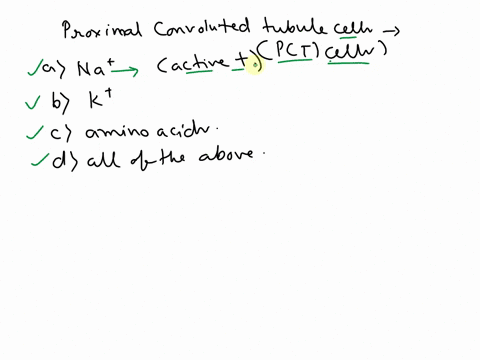 Proximal Convoluted tubule cells →
(PCT) cells)
✓a> Na⁺ → (active t.)
✓b> K⁺
✓c> amino acids.
✓d> all of the above.